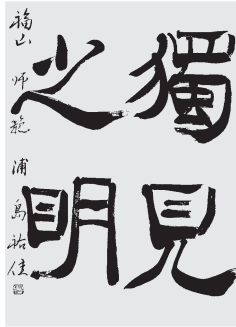 獨見
之明
福山 師範 浦島祐佳